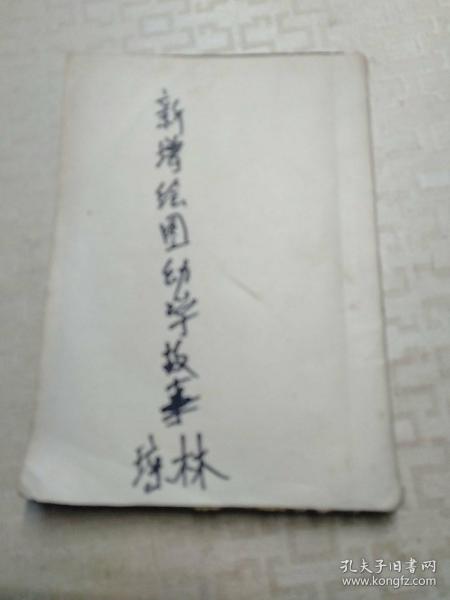 新增绘图幼学故事
琼林
孔夫子旧书网
www.kongfz.com